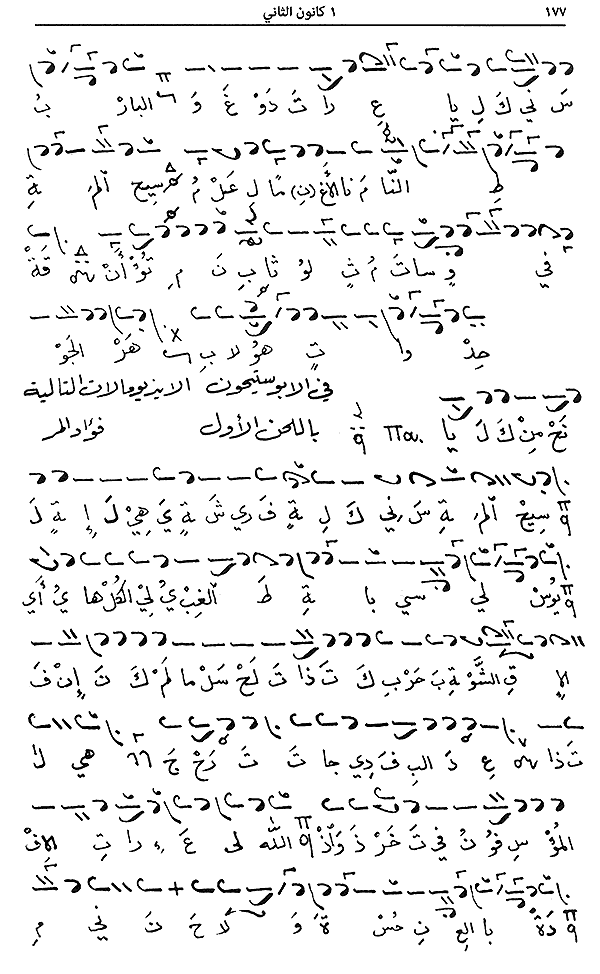 ١٧٧ ١ كانون الثاني
سَ نِي كَ لِ يا عِ را تَ دَوْ غَ وَ البارْ بُ
طَ النّا مَ نا الأَغْ (نِ) مًا لِ عَلْ مُ سيح المَ ةِ
في وِ سا تَ مُ ثٍ لو ثا بِ نَ مِ تُؤْ أَنْ قَةْ
حِدْ وا تٍ هو لا بِ هَرْ الجَوْ
في الابوستيخون الايذيومالات التالية
نَحْ مِنْ كَ لَ يا باللحن الأول فؤاد المر
سيحْ المَ ةِ سَ رني كَ لِ ةٍ فَ دي شَ ةٍ يَ هِيْ لَ إِ ةٍ لَ
يُوسْ لي سي با ةِ طَ الغِبْ يُ لِيْ الكُلْ ها يُ أَي
الإ قِ الشَّوْ ةِ بَ حَرْ بِ كَ تَ ذا تَ لَحْ سَلْ ما لَمْ كَ نَ إِنْ فَ
تَ ذا عِ دَ البِ فَ دي جا تَ تَ رَحْ جَ هي لا
المُؤْ سِ فو نُ في تَ خَرْ ذَ الله لى عَ ءِ را تِ الافْ
دَةْ با العِ نِ حُسْ ةَ وَ لا حَ تَ ني مِ